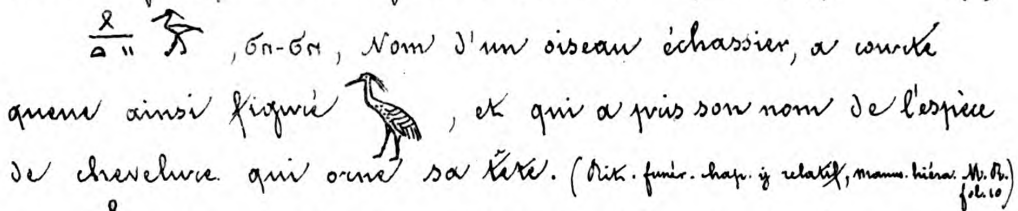 , ϭⲡ-ϭⲡ, Nom d'un oiseau échassier, a courte
queue ainsi figuré , et qui a pris son nom de l'espèce
de chevelure qui orne sa tête. (Rit. funér. chap. y relatif, manus. hiéra. M. R.
fol. 10)